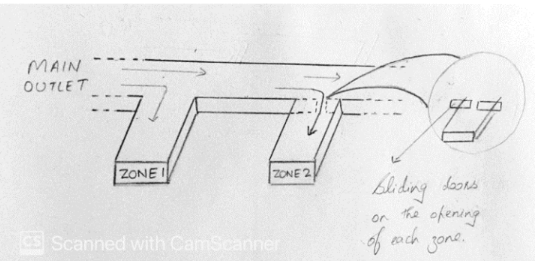 MAIN
OUTLET
ZONE 1
ZONE 2
Sliding doors
on the opening
of each zone.
CS Scanned with CamScanner